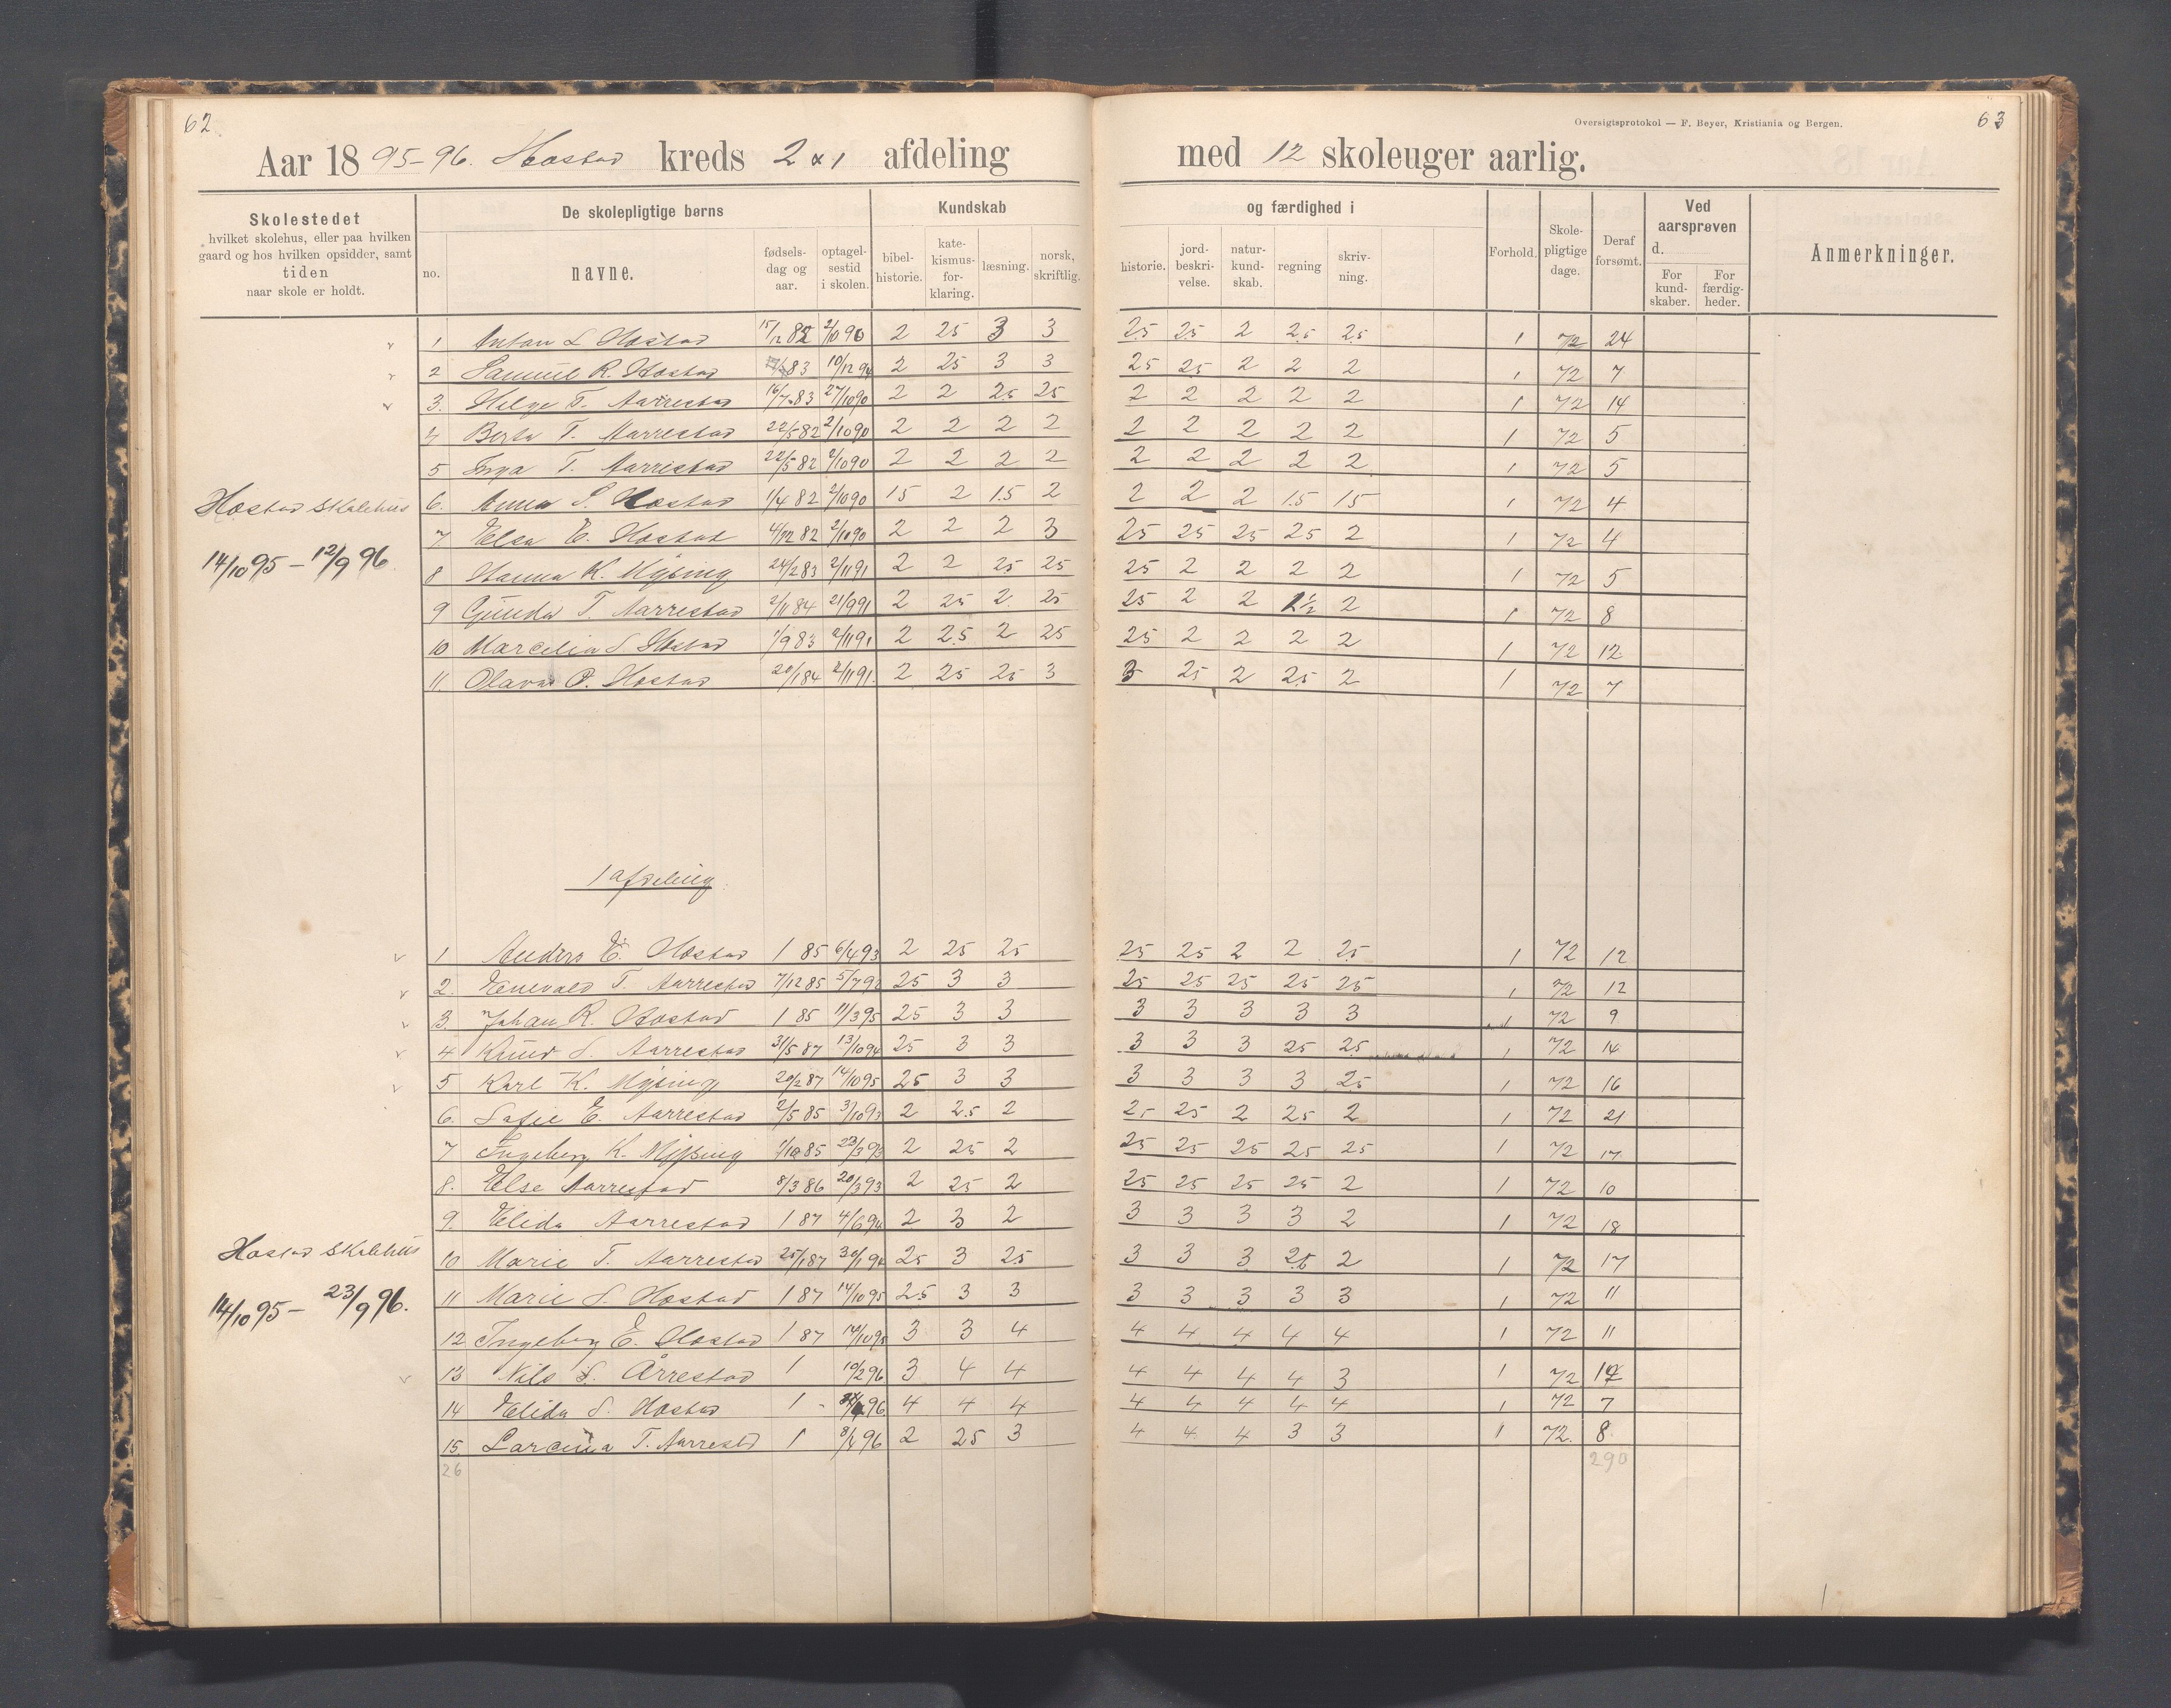 62
Oversigtsprotokol — F. Beyer, Kristiania og Bergen.
63
Aar 1895-96. Hæstad kreds 2 & 1 afdeling med 12 skoleuger aarlig.
Skolestedet hvilket skolehus, eller paa hvilken gaard og hos hvilken opsidder, samt tiden naar skole er holdt.
De skolepligtige børns
no. navne. fødselsdag og aar. optagelsestid i skolen.
Kundskab og færdighed i
bibelhistorie. katekismusforklaring. læsning. norsk, skriftlig. historie. jordbeskrivelse. naturkundskab. regning skrivning.
Forhold. Skolepligtige dage. Deraf forsømt.
Ved aarsprøven d.
For kundskaber. For færdigheder.
Anmerkninger.
1 Anton L Hæstad 15/12 82 2/10 90 2 25 3 3 25 25 2 25 25 1 72 24
2 Samuel R. Hæstad 83 10/12 94 2 25 3 3 25 25 2 2 2 1 72 7
3. Helge T. Aarrestad 16/7 83 27/10 90 2 2 25 25 2 2 2 2 2 1 72 14
4 Berta T. Aarrestad 22/5 82 2/10 90 2 2 2 2 2 2 2 2 2 1 72 5
5 Inga T. Aarrestad 22/5 82 2/10 90 2 2 2 2 2 2 2 2 2 1 72 5
Hæstad Skolehus
6. Anna S. Hæstad 1/4 82 2/10 90 15 2 1.5 2 2 2 2 15 15 1 72 4
7 Elsa E. Hæstad 4/12 82 2/10 90 2 2 2 3 25 25 25 25 2 1 72 4
14/10 95 - 12/9 96
8 Hanna K. Mysing 24/2 83 2/11 91 2 2 25 25 25 2 2 2 2 1 72 5
9 Gunda T. Aarrestad 2/11 84 21/9 91 2 25 2 25 25 2 2 2 1 72 8
10 Marcelia S Hæstad 1/9 83 2/11 91 2 2.5 2 25 25 2 2 2 2 1 72 12
11. Olava P. Hæstad 20/1 84 2/11 91. 2 25 25 3 3 25 2 25 2 1 72 7
1 afdeling
1 Anders E. Hæstad 1 85 6/4 93 2 25 25 25 25 2 2 25 1 72 12
2. Enevald T. Aarrestad 7/12 85 25 3 3 25 25 25 25 25 1 72 12
3. Johan R. Hæstad 1 85 11/3 95 25 3 3 3 3 3 3 3 1 72 9
4 Knud S. Aarrestad 31/5 87 13/10 94 25 3 3 3 3 3 25 25 1 72 14
5 Karl K. Mysing 20/2 87 14/10 95 25 3 3 3 3 3 3 25 1 72 16
6. Sofie E. Aarrestad 2/5 85 3/10 93 2 2.5 2 25 25 2 25 2 1 72 21
7 Ingeborg K. Mysing 1/10 85 23/3 93 2 25 2 25 25 25 25 25 1 72 17
8. Else Aarrestad 8/3 86 20/3 93 2 25 2 25 25 25 25 2 1 72 10
9. Elida Aarrestad 1 87 4/6 94 2 3 2 3 3 3 3 2 1 72 18
Hæstad Skolehus
10 Marie T. Aarrestad 25/1 87 25 3 25 3 3 3 25 2 1 72 17
14/10 95 - 23/9 96.
11 Marie S. Hæstad 1 87 14/10 95 25 3 3 3 3 3 3 3 1 72 11
12 Ingeborg E. Hæstad 1 87 14/10 95 3 3 4 4 4 4 4 4 1 72 11
13 Nils S. Årrestad 1 10/2 96 3 4 4 4 4 4 4 3 1 72
14 Elida S. Hæstad 1 - 96 4 4 4 4 4 4 4 4 1 72 7
15. T. Aarrestd 1 8/4 96 2 25 3 4 4 4 3 3 1 72. 8
26
290